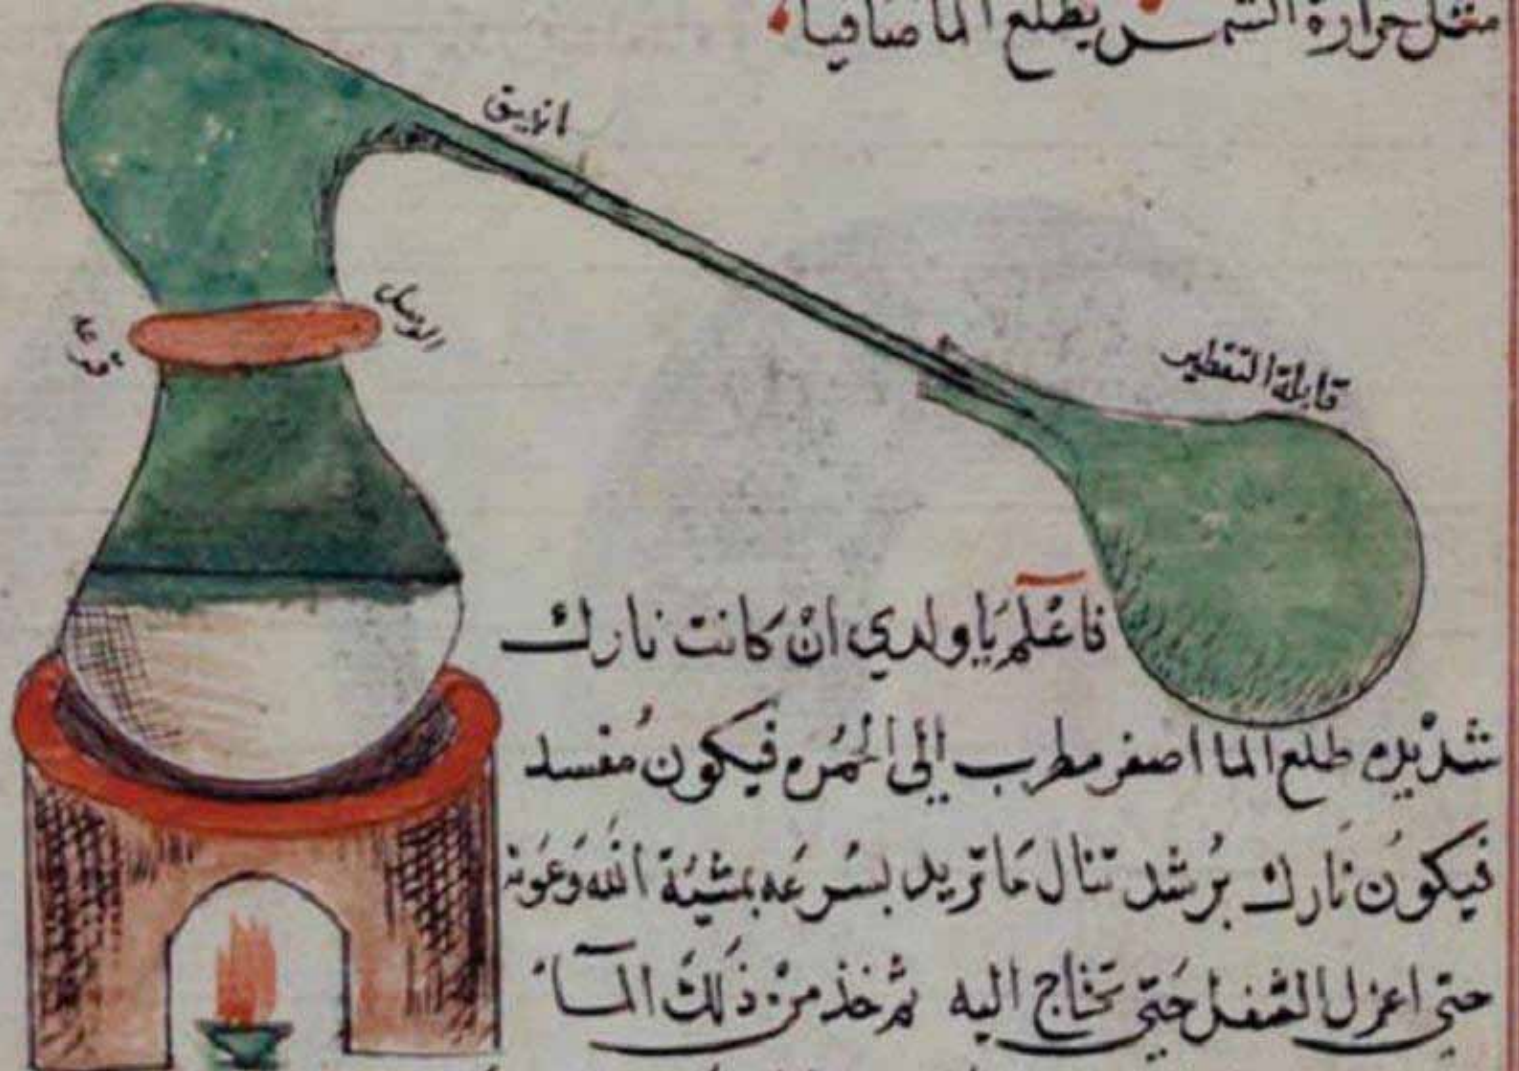 مثل حرارة الشمس يطلع الما صافيا
انبيق
الوصل
قرعه
قابلة التقطير
فاعْلم يَا ولدي انْ كانت نارك
شدْيده طلع الما اصفر مطرب الى الحُمْره فيكون مُفسد
فيكون نَارك برُشد تنال مَا تريد بسُرعَه بمشيَة الله وَعَونه
حتى اعزل الثفل حَتى تحتاج اليه ثم خذ منْ ذلكَ المآء